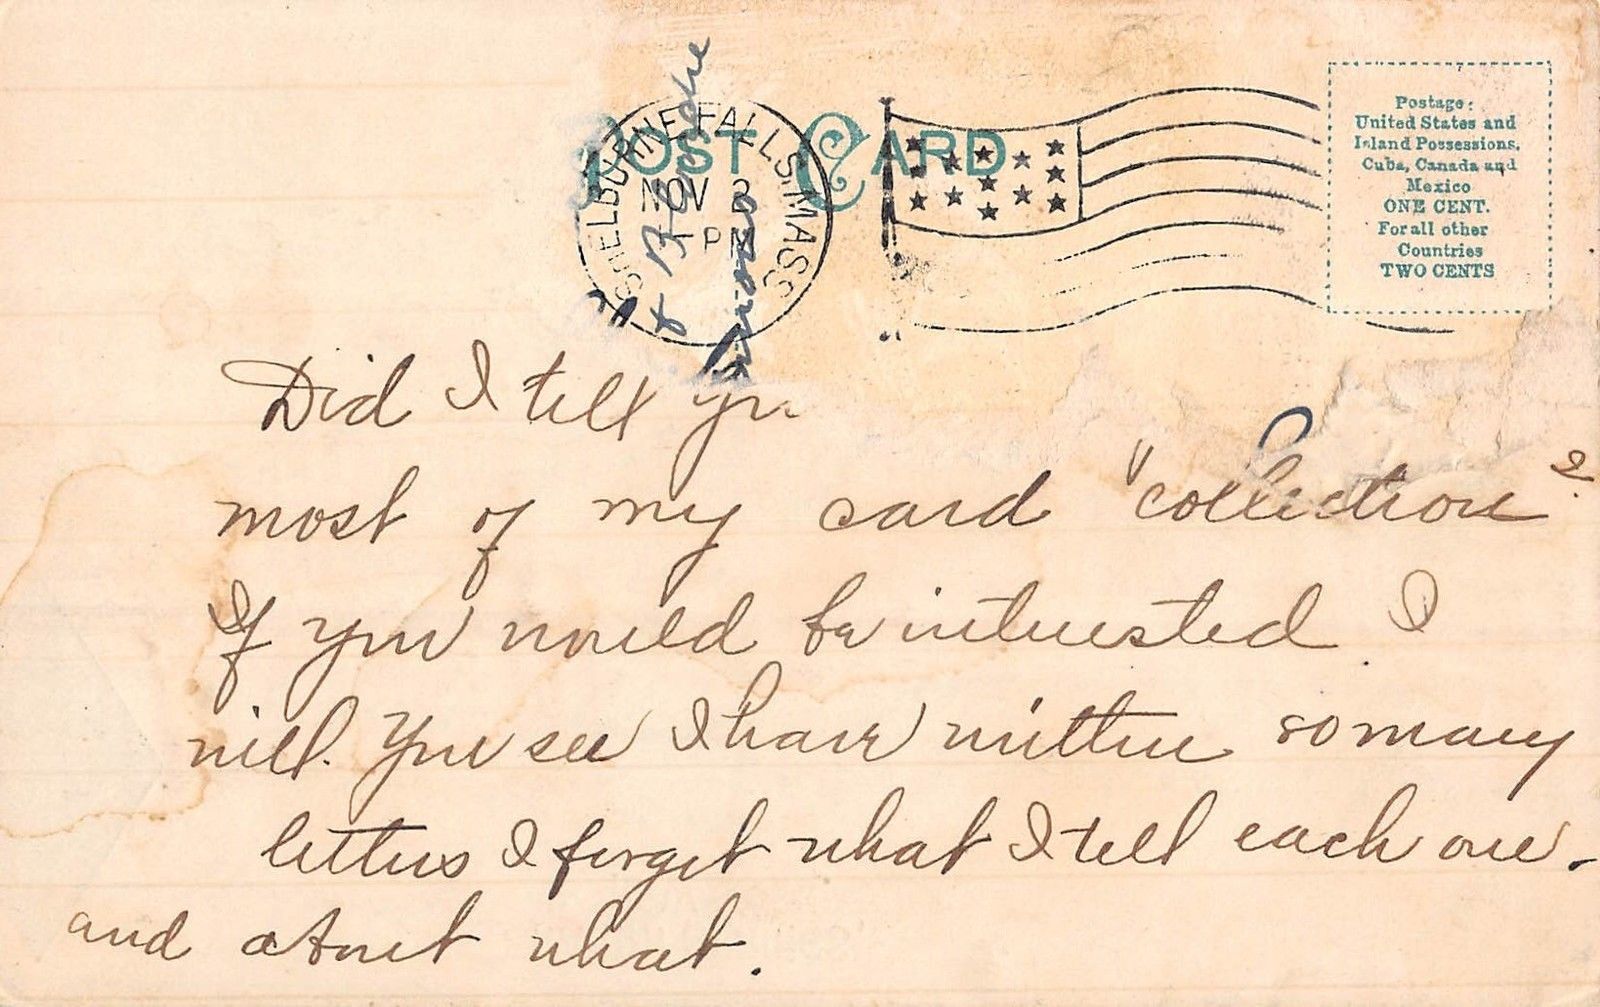 POST CARD
SHELBURNE FALLS. MASS.
NOV
PM
Postage:
United States and
Island Possessions,
Cuba, Canada and
Mexico
ONE CENT.
For all other
Countries
TWO CENTS
Did I tell
most of my card "collection"?
If you would be interested I
will. You see I have written so many
letters I forget what I tell each one.
and about what.